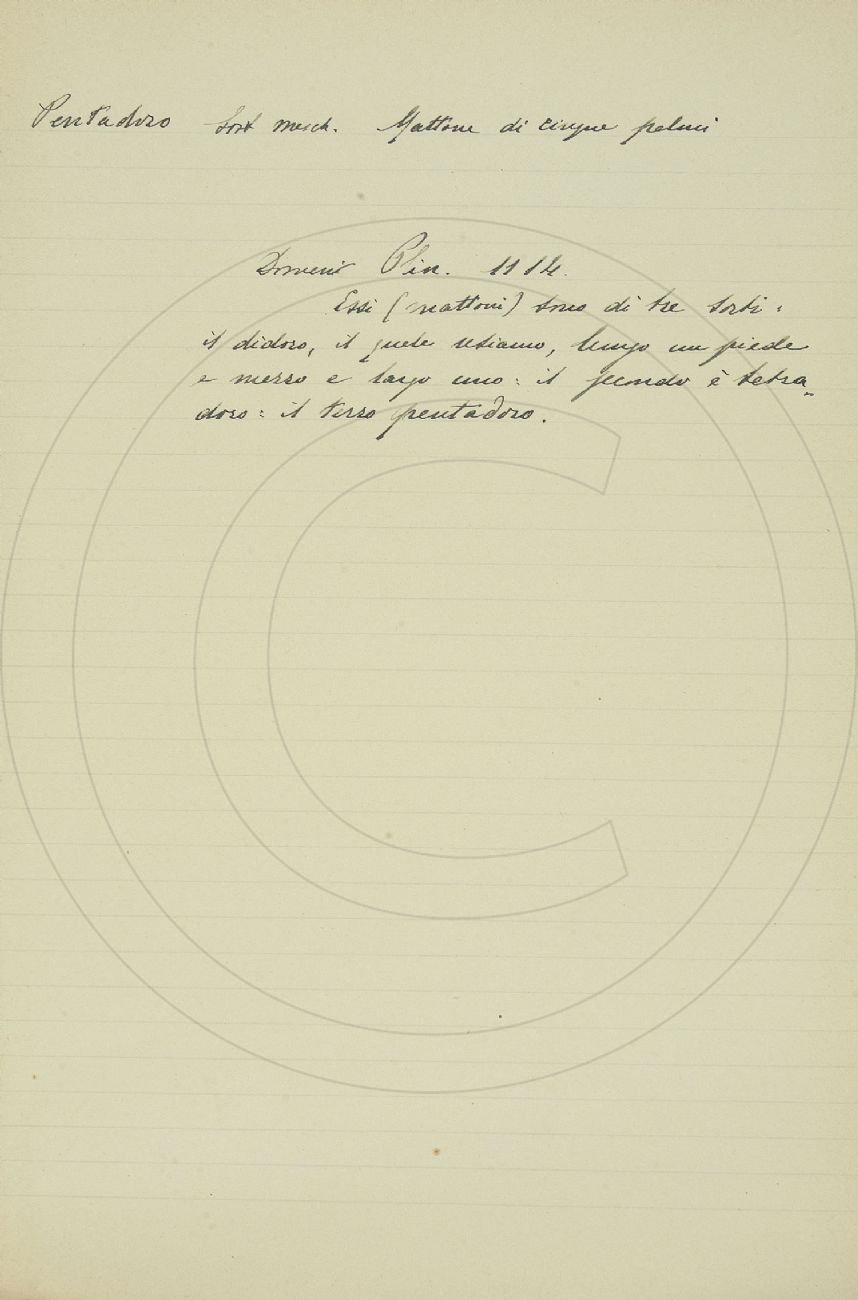 Pentadoro Sost. masch. Mattone di cinque palmi
Domeni Plin. 1114.
Essi (mattoni) sono di tre sorti:
il didoro, il quale usiamo, lungo un piede
e mezzo e largo uno: il secondo è tetra„
doro: il terzo pentadoro.